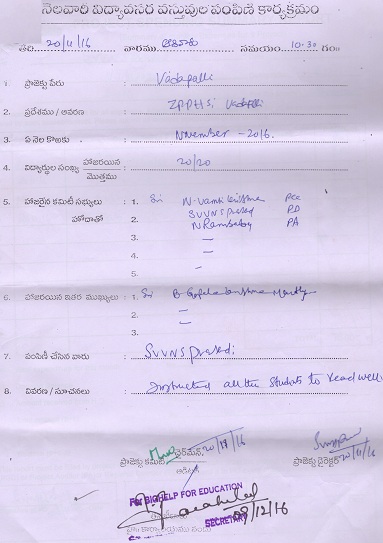 నెలవారి విద్యావసర వస్తువుల పంపిణి కార్యక్రమం
తేది 20/11/16 వారము ఆదివారం సమయం 10.30 గం॥
1. ప్రాజెక్టు పేరు : Vadapalli
2. ప్రదేశము / ఆవరణ : ZPPHS, Vadapalli
3. ఏ నెల కొఱకు : November - 2016.
4. విద్యార్థుల సంఖ్య హాజరయిన : 20/20
మొత్తము
5. హాజరైన కమిటీ సభ్యులు : 1. Sri N. Vamsi Krishna PCC
హోదాతో 2. SVVNS Prasad PD
N Rambabu PA
3. —
4. —
5. -
6. హాజరయిన ఇతర ముఖ్యులు : 1. Sri B Gopala Krishna Murthy
2. —
3. —
7. పంపిణీ చేసిన వారు : SVVNS Prasad
8. వివరణ / సూచనలు : Instructed all the Students to read well.
ప్రాజెక్టు కమిటీ చైర్‌మన్ 20/11/16 ప్రాజెక్టు డైరెక్టర్ 20/11/16
For BIGHELP FOR EDUCATION
SECRETARY
08/12/16